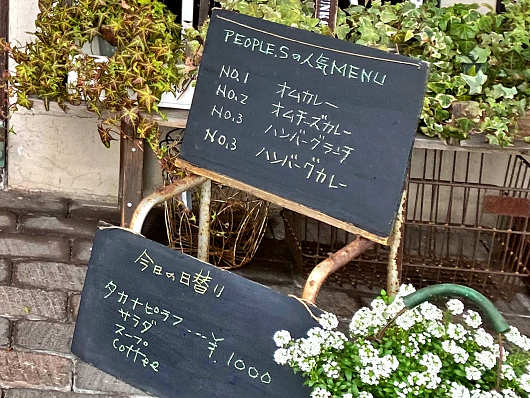 PEOPLE.Sの人気MENU
NO.1 オムカレー
NO.2 オムチーズカレー
NO.3 ハンバーグランチ
NO.3 ハンバーグカレー
今日の日替り
タカナピラフ...¥.1000
サラダ
スープ
coffee